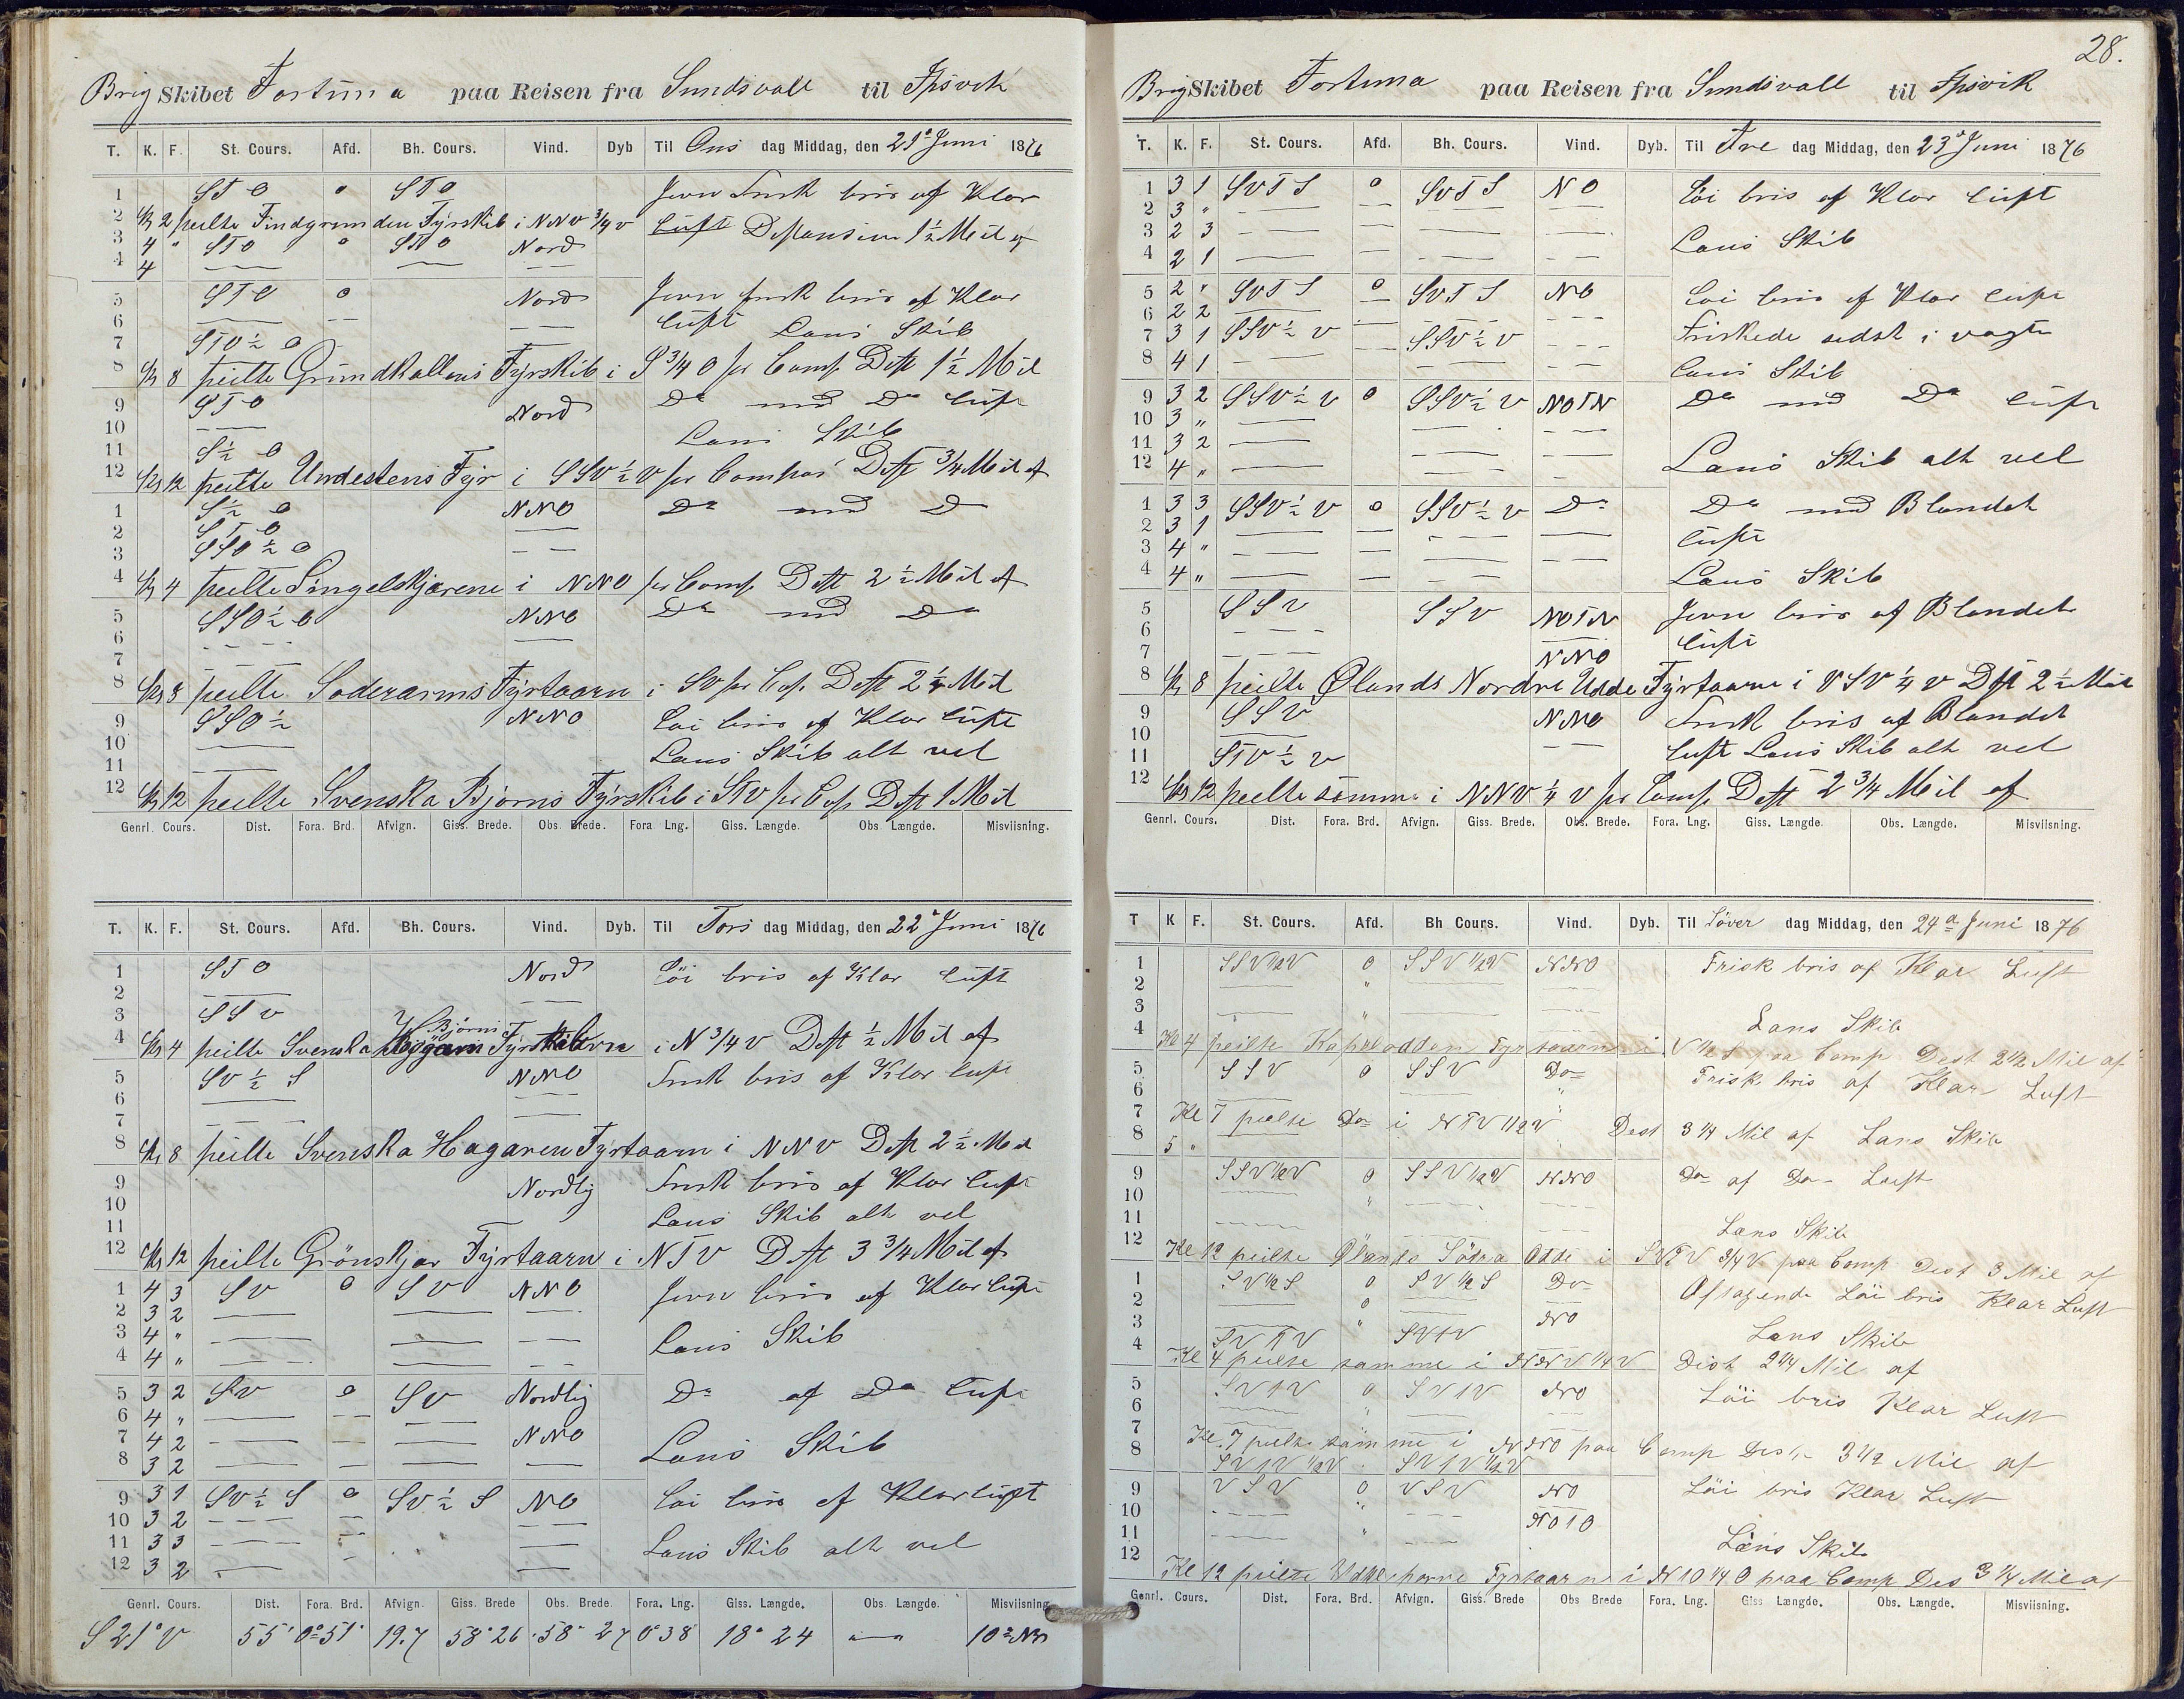 Brig Skibet Fortuna paa Reisen fra Sundsvall til Ipsvik
T. K. F. St. Cours. Afd. Bh. Cours. Vind. Dyb Til Ons dag Middag, den 21 Juni 1876
1 STO o STO Jevn Frisk bris af Klar
2 Kl 2 peilte Findgrunden Fyrskib i NNV 3/4 V Luft Distansen 1 1/2 Mil af
3 4 " STO o STO Nord
4 4
5 STO o Nord Jevn frisk bris af Klar
6 Luft Lans Skib
7 STO 1/2 O
8 Kl 8 peilte Grundkallens Fyrskib i S 3/4 O pr Comp Dist 1 1/2 Mil
9 STO Nord Do med Do Luft
10 Lans Skib
11 S 1/2 O
12 Kl 12 peilte Undestens Fyr i SSV 1/2 V pr Compas Dist 3/4 Mil af
1 S 1/2 O NNO Do med Do
2 STO
3 SSO 1/2 O
4 Kl 4 peilte Singelskjærene i NNO pr Comp Dist 2 1/2 Mil af
5 SSO 1/2 O NNO Do med Do
6
7
8 Kl 8 peilte Soderarms Fyrtaarn i SV pr Cop Dist 2 1/4 Mil
9 SSO 1/2 NNO Løi bris af Klar Luft
10 Lans Skib alt vel
11
12 Kl 12 peilte Svenska Bjorns Fyrskib i STV pr Cop Dist 1 Mil
Genrl. Cours. Dist. Fora. Brd. Afvign. Giss. Brede. Obs. Brede. Fora. Lng. Giss. Længde. Obs Længde. Misviisning.
T. K. F. St. Cours. Afd. Bh. Cours. Vind. Dyb. Til Tors dag Middag, den 22 Juni 1876
1 STO Nord Löi bris af Klar Luft
2
3 SSV
Bjorns
4 Kl 4 peilte Svenska Fyrskib i N 3/4 V Dist 1/2 Mil af
5 SV 1/2 S NNO Frisk bris af Klar Luft
6
7
8 Kl 8 peilte Svenska Hagaren Fyrtaarn i NNV Dist 2 1/2 Mil
9 Nordlig Frisk bris af Klar Luft
10 Lans Skib alt vel
11
12 Kl 12 peilte Grönskjar Fyrtaarn i NTV Dist 3 3/4 Mil af
1 4 3 SV o SV NNO Jevn bris af Klar Luft
2 3 2
3 4 " Lans Skib
4 4 "
5 3 2 SV o SV Nordlig Do af Do Luft
6 4 "
7 4 2 NNO Lans Skib
8 3 2
9 3 1 SV 1/2 S o SV 1/2 S NO Løi bris af Klar Luft
10 3 2
11 3 3 Lans Skib alt vel
12 3 2
Genrl. Cours. Dist. Fora. Brd. Afvign. Giss. Brede Obs. Brede. Fora. Lng. Giss. Længde. Obs. Længde. Misviisning
S 21° V 55' 0° 51' 19.7 58° 26 58° 27 0° 38 18° 24
28.
Brig Skibet Fortuna paa Reisen fra Sundsvall til Ipsvik
T. K. F. St. Cours. Afd. Bh. Cours. Vind. Dyb. Til Fre dag Middag, den 23 Juni 1876
1 3 1 SVTS o SVTS NO Löi bris af Klar Luft
2 3 "
3 2 3 Lans Skib
4 2 1
5 2 " SVTS o SVTS NO Løi bris af Klar Luft
6 2 2 Friskede sidst i vagte
7 3 1 SSV 1/2 V SSV 1/2 V
8 4 1 Lans Skib
9 3 2 SSV 1/2 V o SSV 1/2 V NOTN Do med Do Luft
10 3 "
11 3 2 Lans Skib alt vel
12 4 "
1 3 3 SSV 1/2 V o SSV 1/2 V Do Do med Blandet
2 3 1 Luft
3 4 "
4 4 " Lans Skib
5 SSV SSV NOTN Jevn bris af Blandet
6 Luft
7 NNO
8 Kl 8 peilte Ølands Nordre Udde Fyrtaarn i VSV 1/4 V Dist 2 1/2 Mil
9 SSV NNO Frisk bris af Blandet
10 Luft Lans Skib alt vel
11 STV 1/2 V
12 Kl 12 peilte samme i NNV 1/4 V pr Comp Dist 2 3/4 Mil af
Genrl. Cours. Dist. Fora. Brd. Afvign. Giss. Brede. Obs. Brede. Fora. Lng. Giss. Længde. Obs. Længde. Misviisning.
T K F. St. Cours. Afd. Bh Cours. Vind. Dyb. Til Löver dag Middag, den 24 Juni 1876
1 SSV 1/2 V o SSV 1/2 V NNO Frisk bris af Klar Luft
2 "
3 " Lans Skib
4 Kl 4 peilte Kapeludden Fyrtaarn i V 1/2 S paa Comp Dist 2 1/2 Mil af
5 SSV o SSV Do Frisk bris af Klar Luft
6
7 Kl 7 peilte Do i NTV 1/2 V Dist 3 1/4 Mil af Lans Skib
8 5 "
9 SSV 1/2 V o SSV 1/2 V NNO Do af Do Luft
10 "
11 Lans Skib
12 Kl 12 peilte Ölands Södra Odde i SVTV 3/4 V paa Comp Dist 3 Mil af
1 SV 1/2 S o SV 1/2 S Do Aftagende Löi bris Klar Luft
2 o
3 " NO Lans Skib
SVTV SVTV
4 Kl 4 peilte samme i NNV 1/4 V Dist 2 1/4 Mil af
5 SVTV o SVTV NO Löi bris Klar Luft
6 "
7 Kl. 7 peilte samme i NNO paa Comp Dist 3 1/2 Mil af
8 SVTV 1/2 V SVTV 1/2 V
9 VSV o VSV NO Löi bris Klar Luft
10 " NOTO
11 " Læns Skib
12 Kl 12 peilte Fyrtaarn i NTO 1/4 O paa Comp Dis 3 1/4 Mil af
Genrl. Cours. Dist. Fora. Brd. Afvign. Giss. Brede Obs Brede Fora. Lng. Giss Længde. Obs. Længde. Misviisning.